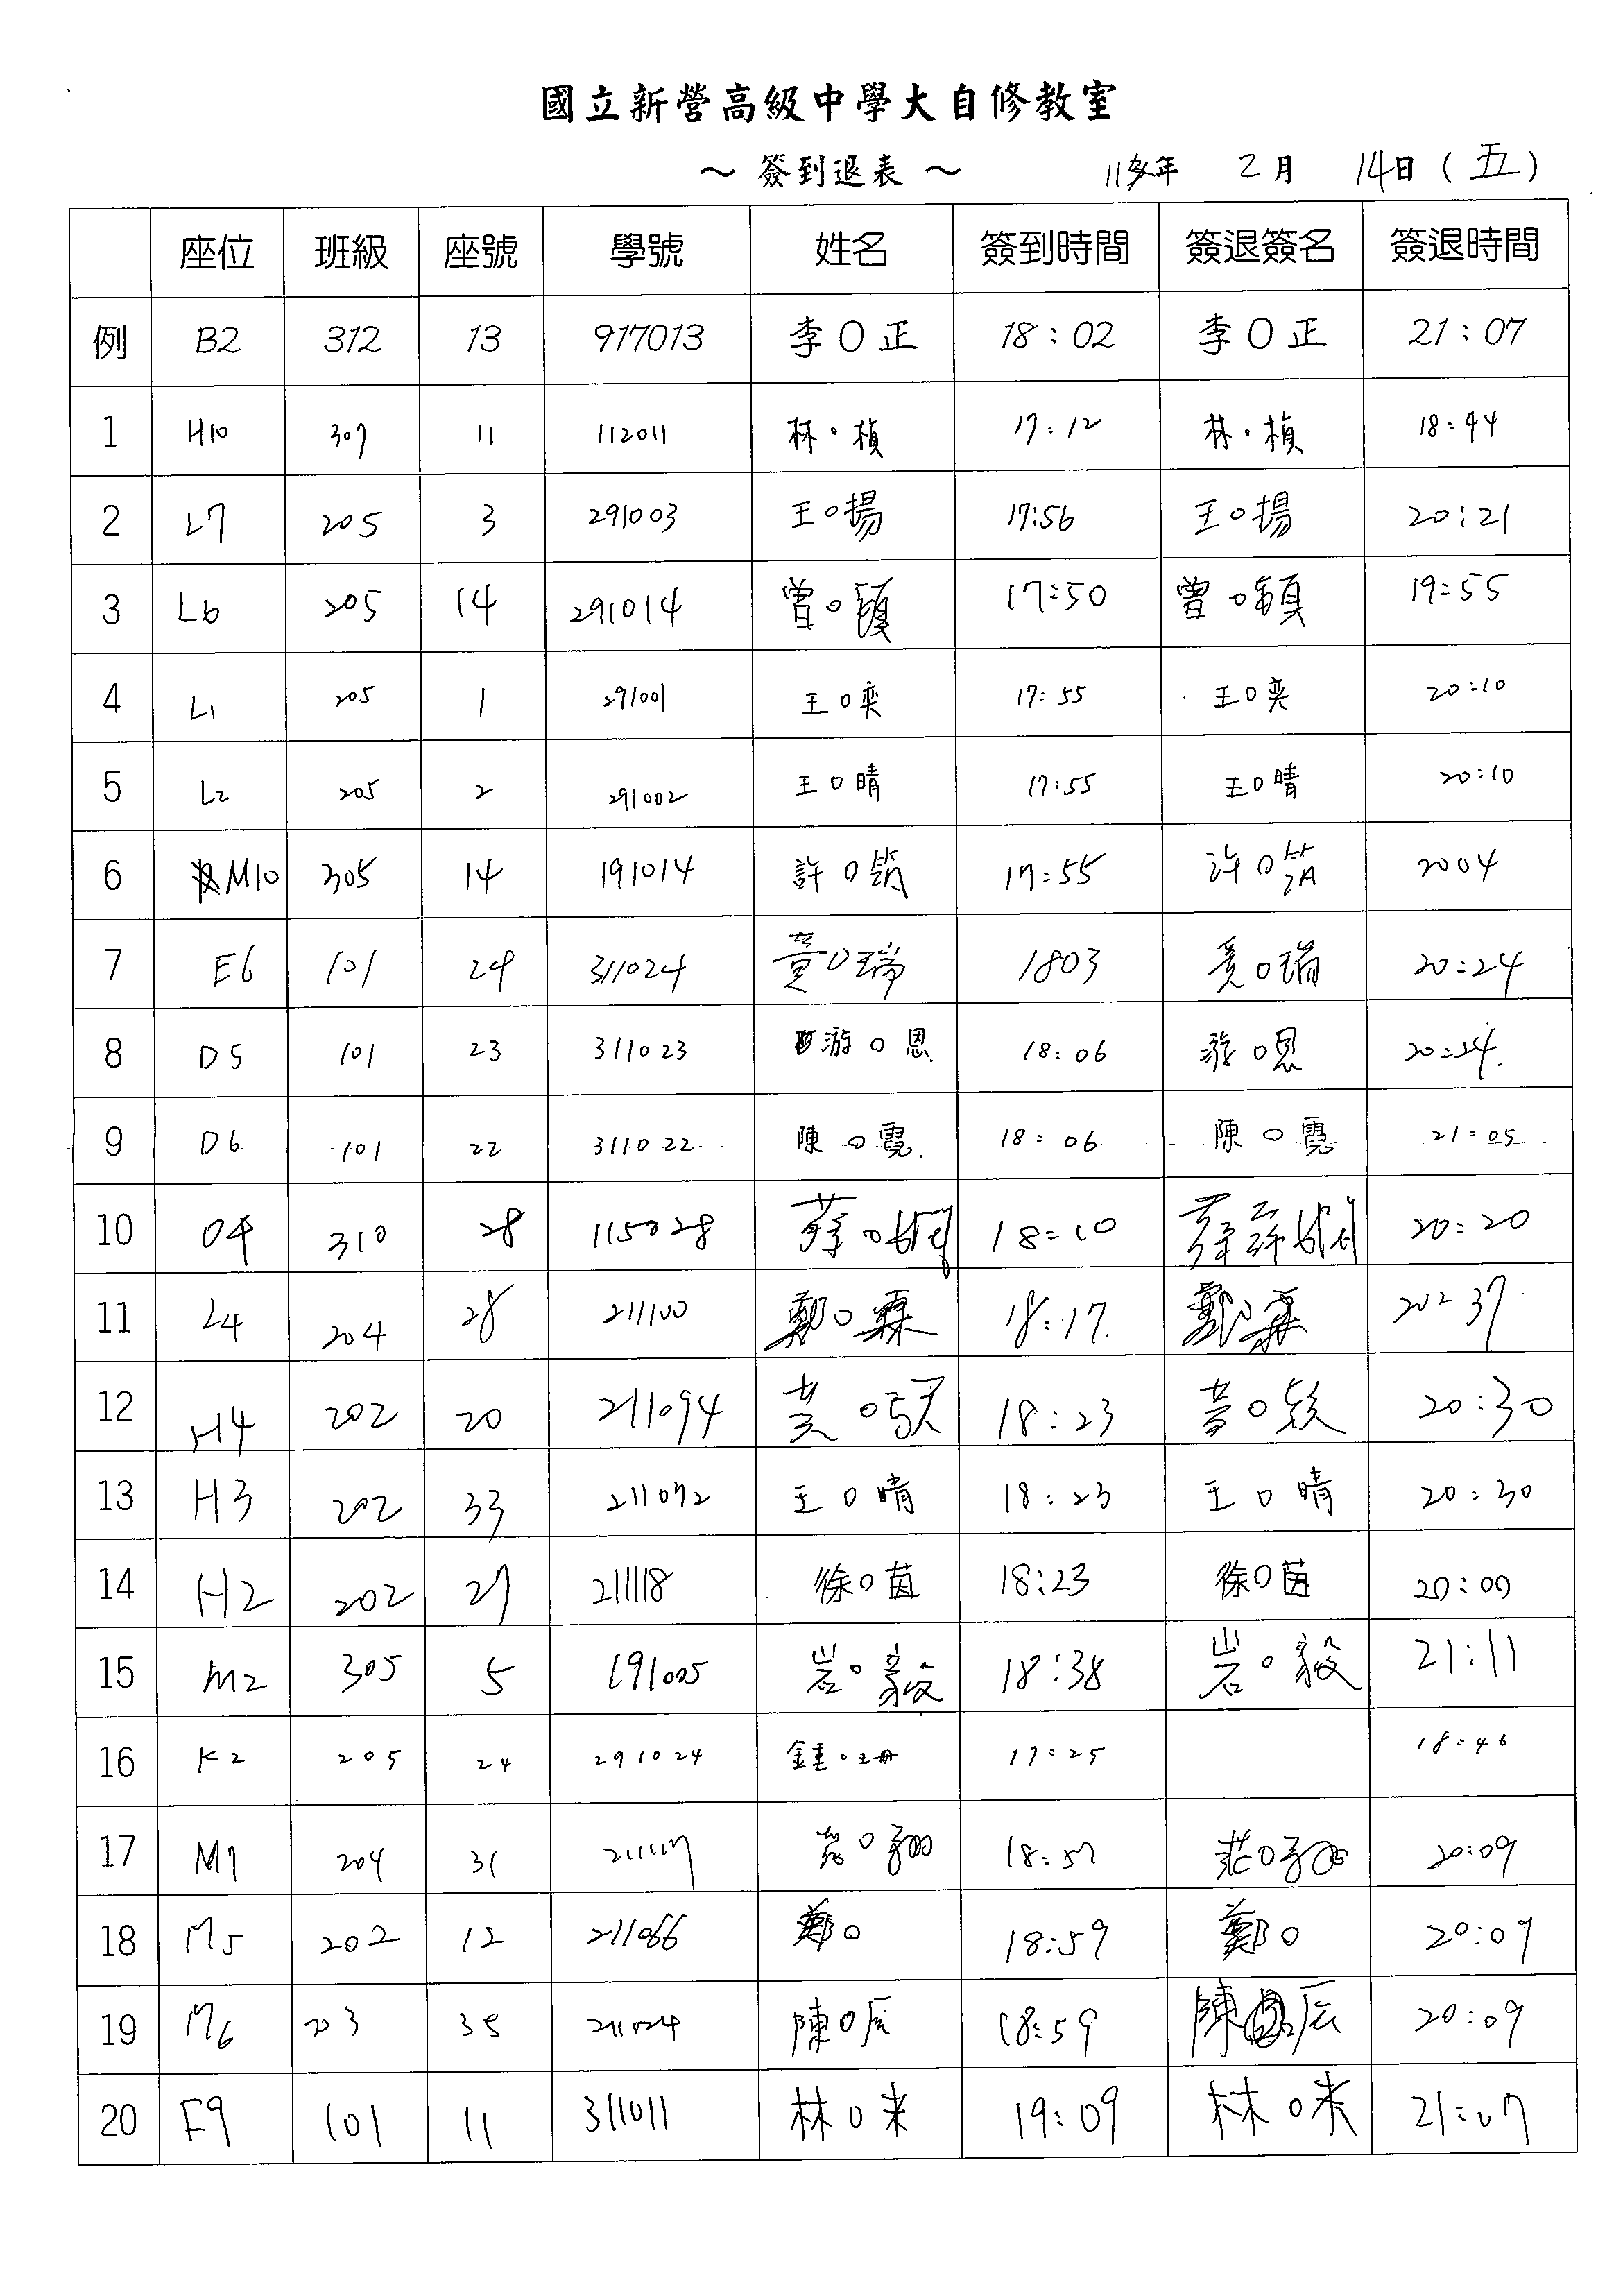 國立新營高級中學大自修教室
～ 簽到退表 ～ 年 2月 14日 (五)
座位 班級 座號 學號 姓名 簽到時間 簽退簽名 簽退時間
例 B2 312 13 917013 李O正 18:02 李O正 21:07
1 H10 307 11 112011 林·楨 17:12 林·楨 18:44
2 L7 205 3 291003 王O揚 17:56 王O揚 20:21
3 L6 205 14 291014 曾O 17:50 曾O 19:55
4 L1 205 1 291001 王O奕 17:55 王O奕 20:10
5 L2 205 2 291002 王O晴 17:55 王O晴 20:10
6 M10 305 14 191014 許O筑 17:55 許O 2004
7 E6 101 24 311024 黃O瑞 1803 黃O瑞 20:24
8 D5 101 23 311023 游O恩 18:06 游O恩 20:24
9 D6 101 22 311022 陳O霓 18:06 陳O霓 21:05
10 O4 310 28 115028 蔡O 18:10 蔡 20:20
11 L4 204 28 211100 鄭O霖 18:17 鄭O霖 20:37
12 H4 202 20 211094 黃O 18:23 黃O 20:30
13 H3 202 33 211072 王O晴 18:23 王O晴 20:30
14 H2 202 27 211118 徐O茵 18:23 徐O茵 20:09
15 M2 305 5 191005 岩O毅 18:38 岩O毅 21:11
16 K2 205 24 291024 鍾O珊 17:25 18:46
17 M7 204 31 211117 莊O翔 18:57 莊O 20:09
18 M5 202 12 211066 鄭O 18:59 鄭O 20:09
19 M6 203 35 陳O辰 18:59 陳 辰 20:09
20 F9 101 11 311011 林O米 19:09 林O米 21:07